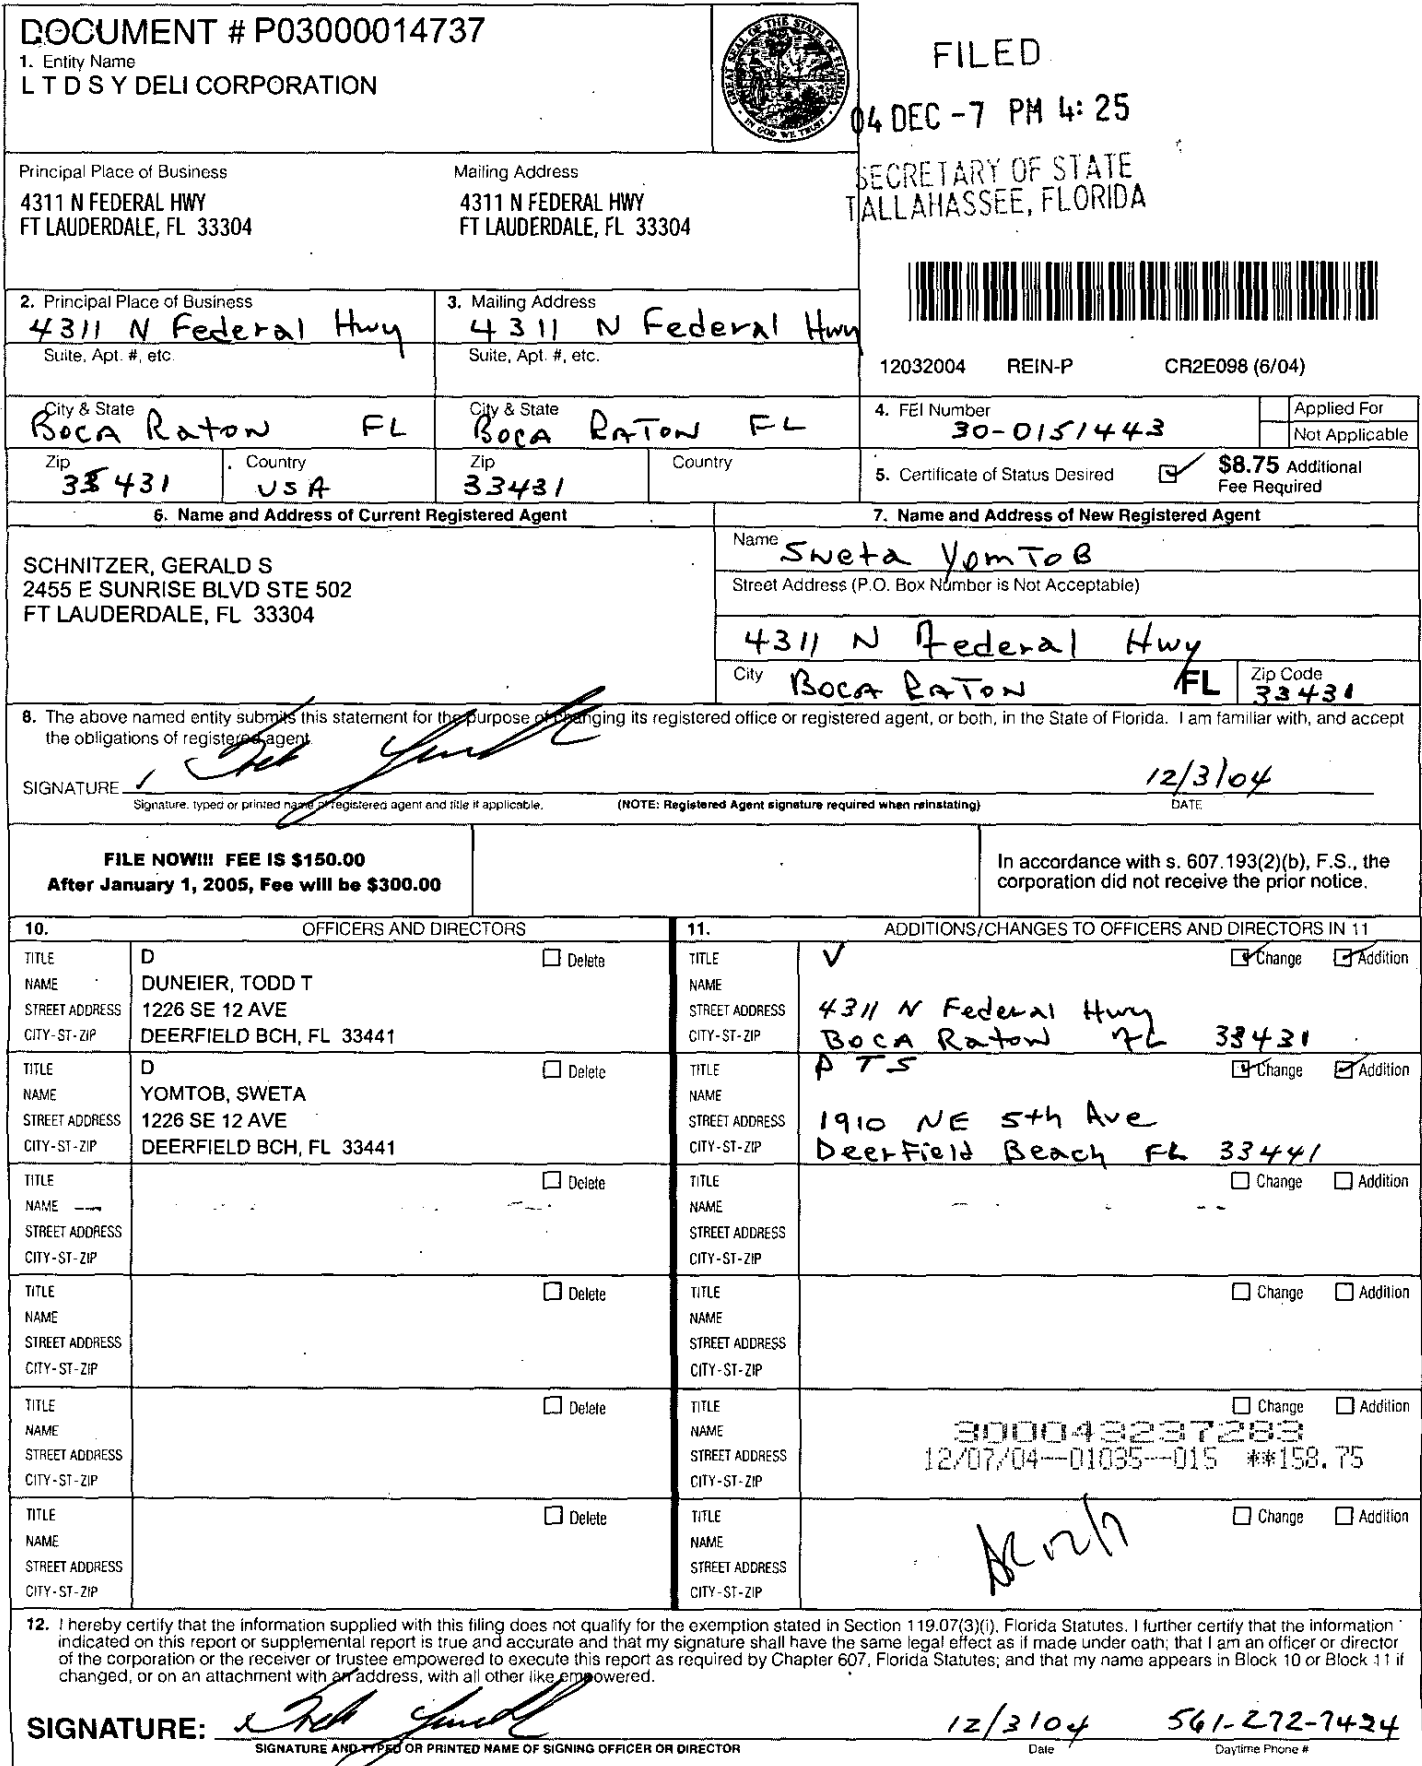 DOCUMENT # P03000014737
1. Entity Name
L T D S Y DELI CORPORATION
GREAT SEAL OF THE STATE OF FLORIDA
IN GOD WE TRUST
FILED
04 DEC -7 PM 4: 25
SECRETARY OF STATE
TALLAHASSEE, FLORIDA
Principal Place of Business
4311 N FEDERAL HWY
FT LAUDERDALE, FL 33304
Mailing Address
4311 N FEDERAL HWY
FT LAUDERDALE, FL 33304
2. Principal Place of Business
4311 N Federal Hwy
Suite, Apt. #, etc.
City & State
BOCA RATON FL
Zip
33431
Country
USA
3. Mailing Address
4311 N Federal Hwy
Suite, Apt. #, etc.
City & State
BOCA RATON FL
Zip
33431
Country
12032004 REIN-P CR2E098 (6/04)
4. FEI Number
30-0151443
Applied For
Not Applicable
5. Certificate of Status Desired
$8.75 Additional
Fee Required
6. Name and Address of Current Registered Agent
SCHNITZER, GERALD S
2455 E SUNRISE BLVD STE 502
FT LAUDERDALE, FL 33304
7. Name and Address of New Registered Agent
Name Sweta YomToB
Street Address (P.O. Box Number is Not Acceptable)
4311 N Federal Hwy
City BOCA RATON FL
Zip Code
33431
8. The above named entity submits this statement for the purpose of changing its registered office or registered agent, or both, in the State of Florida. I am familiar with, and accept
the obligations of registered agent.
SIGNATURE
12/3/04
Signature, typed or printed name of registered agent and title if applicable. (NOTE: Registered Agent signature required when reinstating) DATE
FILE NOW!!! FEE IS $150.00
After January 1, 2005, Fee will be $300.00
In accordance with s. 607.193(2)(b), F.S., the
corporation did not receive the prior notice.
10. OFFICERS AND DIRECTORS
TITLE D Delete
NAME DUNEIER, TODD T
STREET ADDRESS 1226 SE 12 AVE
CITY-ST-ZIP DEERFIELD BCH, FL 33441
TITLE D Delete
NAME YOMTOB, SWETA
STREET ADDRESS 1226 SE 12 AVE
CITY-ST-ZIP DEERFIELD BCH, FL 33441
TITLE Delete
NAME
STREET ADDRESS
CITY-ST-ZIP
TITLE Delete
NAME
STREET ADDRESS
CITY-ST-ZIP
TITLE Delete
NAME
STREET ADDRESS
CITY-ST-ZIP
TITLE Delete
NAME
STREET ADDRESS
CITY-ST-ZIP
11. ADDITIONS/CHANGES TO OFFICERS AND DIRECTORS IN 11
TITLE V Change Addition
NAME
STREET ADDRESS 4311 N Federal Hwy
CITY-ST-ZIP BOCA Raton FL 33431
TITLE P T S Change Addition
NAME
STREET ADDRESS 1910 NE 5th Ave
CITY-ST-ZIP DeerField Beach FL 33441
TITLE Change Addition
NAME
STREET ADDRESS
CITY-ST-ZIP
TITLE Change Addition
NAME
STREET ADDRESS
CITY-ST-ZIP
TITLE Change Addition
NAME 300043237283
STREET ADDRESS 12/07/04--01035--015 **158.75
CITY-ST-ZIP
TITLE Change Addition
NAME
STREET ADDRESS
CITY-ST-ZIP
12/7
12. I hereby certify that the information supplied with this filing does not qualify for the exemption stated in Section 119.07(3)(i), Florida Statutes. I further certify that the information
indicated on this report or supplemental report is true and accurate and that my signature shall have the same legal effect as if made under oath; that I am an officer or director
of the corporation or the receiver or trustee empowered to execute this report as required by Chapter 607, Florida Statutes; and that my name appears in Block 10 or Block 11 if
changed, or on an attachment with an address, with all other like empowered.
SIGNATURE:
12/3/04 561-272-7424
SIGNATURE AND TYPED OR PRINTED NAME OF SIGNING OFFICER OR DIRECTOR Date Daytime Phone #